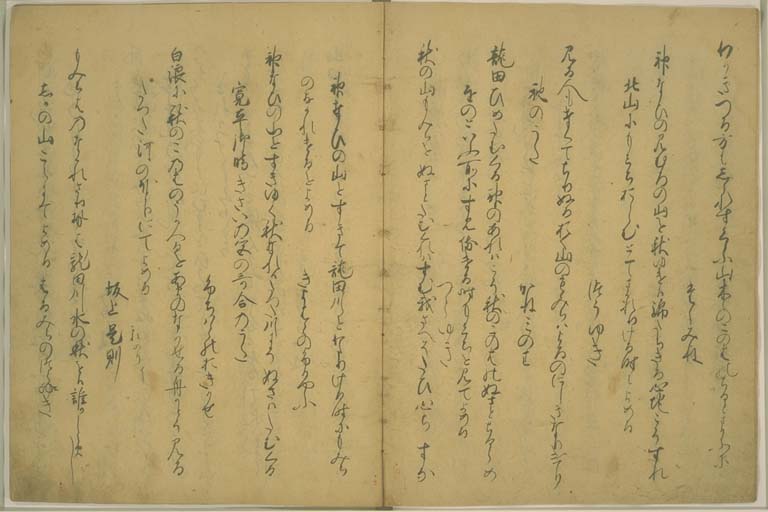 わかきつる方もしられすくらふ山木々のこのはのちるとまかふに
たゝみね
神なひのみむろの山を秋ゆけは錦たちきる心地こそすれ
北山にもみちおらむとてまかれりける時によめる
つらゆき
見る人もなくてちりぬるおく山のもみちはよるのにしきなりけり
秋のうた
かねみの王
龍田ひめたむくる神のあれはこそ秋のこのはのぬさとちるらめ
をのといふ所にすみ侍ける時もみちを見てよめる
つらゆき
秋の山もみちをぬさとたむくれはすむ我さへそたひ心ちする
神なひの山をすきて龍田川をわたりける時にもみち
のなかれけるをよめる
きよはらのふかやふ
神なひの山をすきゆく秋なれはたつた川にそぬさはたむくる
寛平御時きさいの宮の哥合のうた
ふちはらのおきかせ
白浪に秋のこのはのうかへるをあまのなかせる舟かとそ見る
たつた河のほとりにてよめる
坂上是則
もみちはのなかれさりせは龍田川水の秋をは誰かしらまし
しかの山こえにてよめる はるみちのつらき